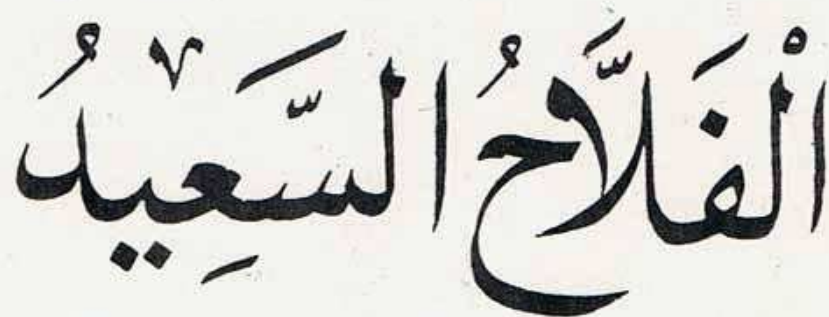 الْفَلَّاحُ السَّعِيدُ